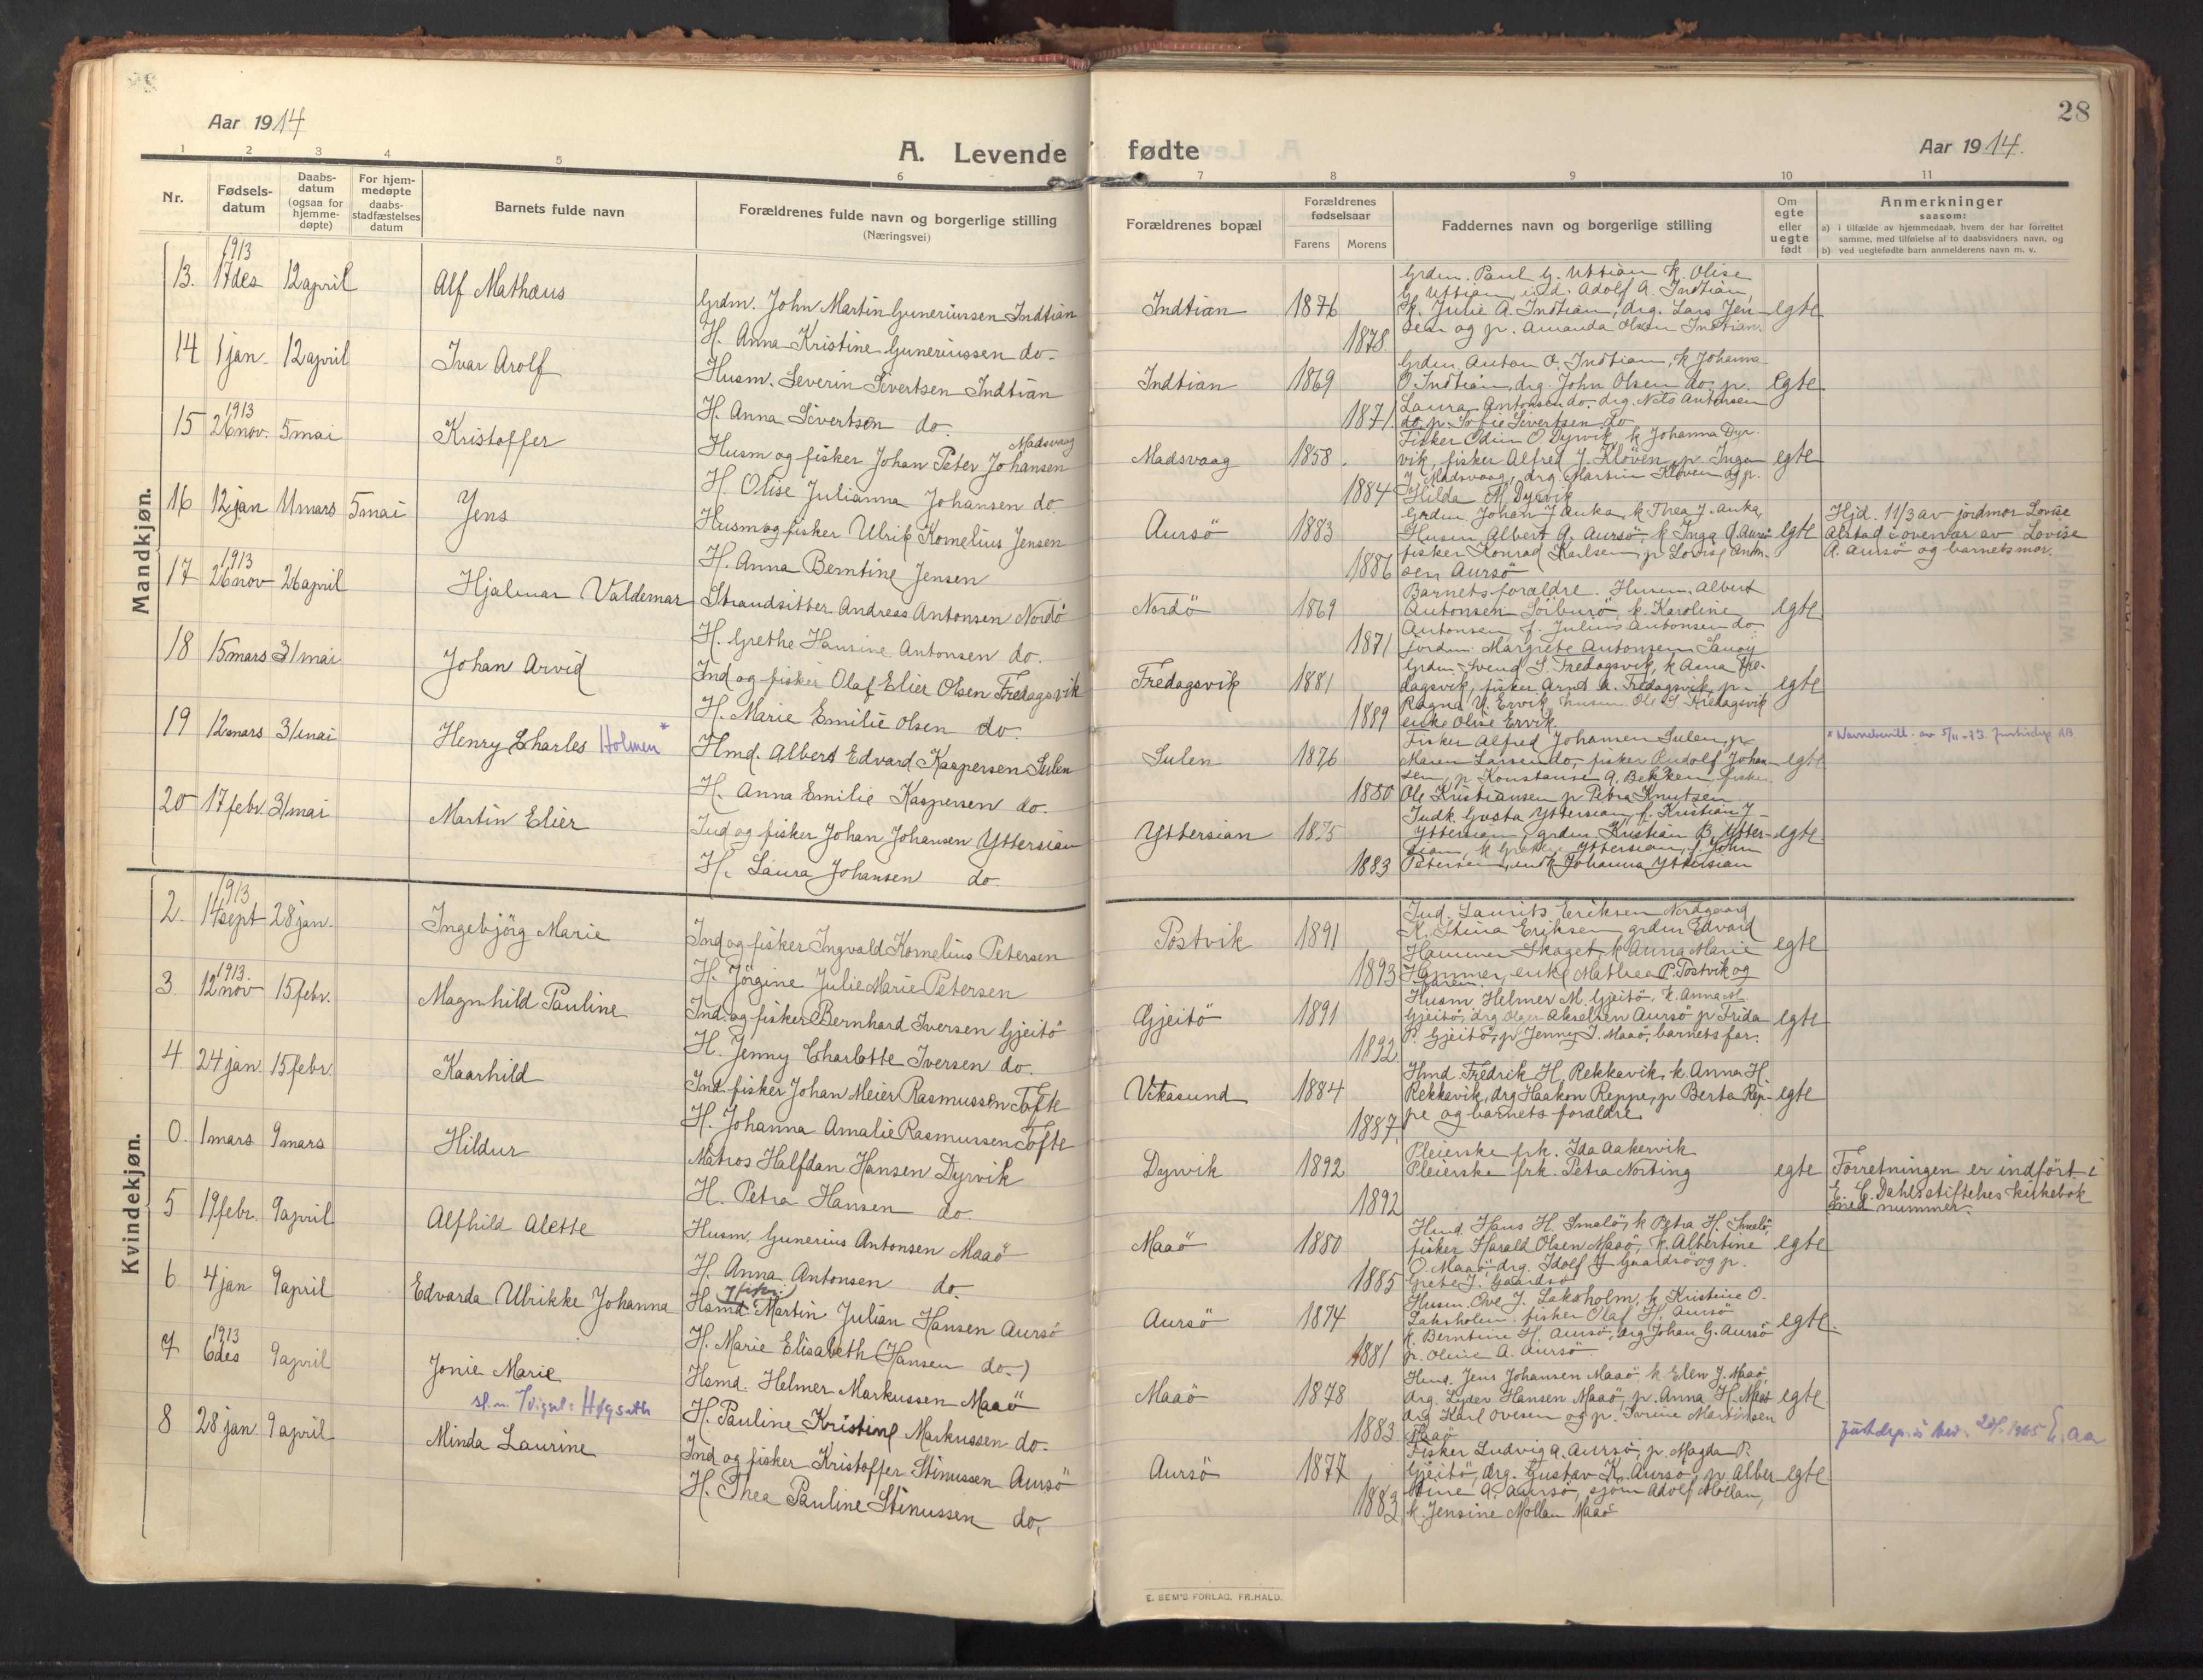 28
Aar 1914
A. Levende fødte
Aar 1914.
1 2 3 4 5 6 7 8 9 10 11
Nr.
Fødsels-
datum
Daabs-
datum
(ogsaa for
hjemme-
døpte)
For hjem-
medøpte
daabs-
stadfæstelses
datum
Barnets fulde navn
Forældrenes fulde navn og borgerlige stilling
(Næringsvei)
Forældrenes bopæl
Forældrenes
fødselsaar
Farens Morens
Faddernes navn og borgerlige stilling
Om
egte
eller
uegte
født
Anmerkninger
saasom:
a) i tilfælde av hjemmedaab, hvem der har forrettet
samme, med tilføielse af to daabsvidners navn, og
b) ved uegtefødte barn anmelderens navn m. v.
Mandkjøn.
1913
13. 17 des 12 april Alf Mathæus
Grdm. John Martin Guneriussen Indtian
H. Anna Kristine Guneriussen do.
Indtian 1876 1878
Grdm. Paul G. Uttian k. Olise
G. Uttian, ind. Adolf A. Indtian,
k. Julie A. Indtian, drg. Lars Jen-
sen og p. Amanda Olsen Indtian.
egte
14 1 jan. 12 april Ivar Arolf
Husm. Severin Sivertsen Indtian
H. Anna Sivertsen do.
Indtian 1869 1871
Grdm. Anton O. Indtian, k. Johanna
O. Indtian, drg. John Olsen do, p.
Laura Antonsen do. drg. Nils Antonsen
do, p. Sofie Sivertsen do
egte
1913
15 26 nov. 5 mai Kristoffer
Madsvaag
Husm og fisker Johan Peter Johansen
H. Olise Julianna Johansen do.
Madsvaag 1858 1884
Fisker Odin O. Dyrvik, k Johanna Dyr-
vik, fisker Alfred J. Kløven, p. Inga
J. Madsvaag, drg. Martin Kløven og p.
Hilda M. Dyrvik
egte
16 12 jan 11 mars 5 mai Jens
Husm og fisker Ulrik Kornelius Jensen
H. Anna Berntine Jensen
Aursö 1883 1886
Grdm. Johan J. Auka, k Thea J. Auka,
Husm. Albert A. Aursö, k Inga A. Aursö
fisker Konrad Karlsen, p Lovise Anton-
sen Aursö
egte
Hjd. 11/3 av jordmor Lovise
Alstad i overvær av Lovise
A. Aursö og barnets mor.
1913
17 26 nov 26 april Hjalmar Valdemar
Strandsitter Andreas Antonsen Nordö
H. Grethe Hansine Antonsen do.
Nordö 1869 1871
Barnets forældre. Husm. Albert
Antonsen k. Karoline
Antonsen f. Julius Antonsen do
jordm. Margrete Antonsen
egte
18 15 mars 31 mai Johan Arvid
Ind og fisker Olaf Elier Olsen Fredagsvik
H. Marie Emilie Olsen do.
Fredagsvik 1881 1889
Grdm. Svend S. Fredagsvik, k Anna Fre-
dagsvik, fisker Arnt A. Fredagsvik, p.
Ragna U. Ervik, husm. Ole S. Fredagsvik
enke Olise Ervik.
egte
19 12 mars 31 mai Henry Charles Holmen*
Hmd. Albert Edvard Kaspersen Sulen
H. Anna Emilie Kaspersen do.
Sulen 1876 1880
Fisker Alfred Johansen Sulen, p
Maren Larsen do, fisker Rudolf Johan-
sen, p Konstanse A. Bekken, fisker
Ole Kristiansen p Petra Knutsen
egte
* Navnebevill. av 5/11-73
20 17 febr. 31 mai Martin Elier
Ind og fisker Johan Johansen Yttersian
H. Laura Johansen do.
Yttersian 1875 1883
Indk. Gusta Yttersian, f. Kristian J
Yttersian, grdm. Kristian B. Ytter-
sian, k Yttersian, f John
Petersen, indk Johanna Yttersian
egte
Kvindekjøn.
1913
2. 14 sept 28 jan. Ingebjörg Marie
Ind og fisker Ingvald Kornelius Petersen
H. Jörgine Julie Marie Petersen
Postvik 1891 1893
Ind. Laurits Eriksen Nordgaard
K. Stina Eriksen, grdm Edvard
Hammer Skaget, k Anna Marie
Hammer, enke Mathea P. Postvik og
faren.
egte
1913.
3 12 nov 15 febr. Magnhild Pauline
Ind. og fisker Bernhard Iversen Gjeitö
H. Jenny Charlotte Iversen do.
Gjeitö 1891 1892
Husm Helmer M. Gjeitö, k. Anna M.
Gjeitö, drg Olger Akselsen Aursö p Frida
P. Gjeitö, p Jenny J. Maaö, barnets far.
egte
4. 24 jan. 15 febr. Kaarhild
Ind. fisker Johan Meier Rasmussen Tofte
H. Johanna Amalie Rasmussen Tofte
Vikasund 1884 1887.
Hmd. Fredrik H. Rekkavik, k. Anna H.
Rekkavik, drg Haakon Reppe, p Berta Rep-
pe og barnets forældre
egte
0. 1 mars 9 mars Hildur
Matros Halfdan Hansen Dyrvik
H. Petra Hansen do.
Dyrvik 1892 1892
Pleierske frk. Ida Aakervik
Pleierske frk. Petra Norting
egte
Forretningen er indført i
E. C. Dahls stiftelses kirkebok
med nummer.
5 19 febr. 9 april Alfhild Alette
Husm. Gunerius Antonsen Maaö
H. Anna Antonsen do.
Maaö 1880 1885
Hmd. Hans H. Smalö, k Petra H. Smalö,
fisker Harald Olsen Maaö, k. Albertine
O. Maaö, drg. Idolf J Gaardsö og p.
Grete J. Gaardsö
egte
6 4 jan 9 april Edvarda Ulrikke Johanna
Hsmd. Martin Julian Hansen Aursö
H. Marie Elisabeth (Hansen do.)
Aursö 1874 1881
Husm. Ove J. Laksholm, k Kristine O.
Laksholm, fisker Olaf H. Aursö
k. Berntine H. Aursö, drg Johan G. Aursö
p. Oline A. Aursö.
egte.
1913
7 6 des 9 april Jonie Marie
Høgseth
Hsmd. Helmer Markussen Maaö
H. Pauline Kristine Markussen do.
Maaö 1878 1883
Hmd. Jens Johansen Maaö, k Elen J. Maaö,
drg. Lyder Hansen Maaö, p. Anna H. Maaö
drg Karl Ovesen og p. Irene Martinsen
Maaö
egte
8 28 jan 9 april Minda Laurine
Ind og fisker Kristoffer Stinussen Aursö
H. Thea Pauline Stinussen do,
Aursö 1877 1883
Fisker Ludvig A. Aursö, p. Magda P.
Gjeitö, drg. Gustav K. Aursö, p. Alber
tine A. Aursö, sjöm Adolf Mollan,
k. Jensine Mollan Maaö
egte
1965
E. SEM'S FORLAG, FR.HALD.